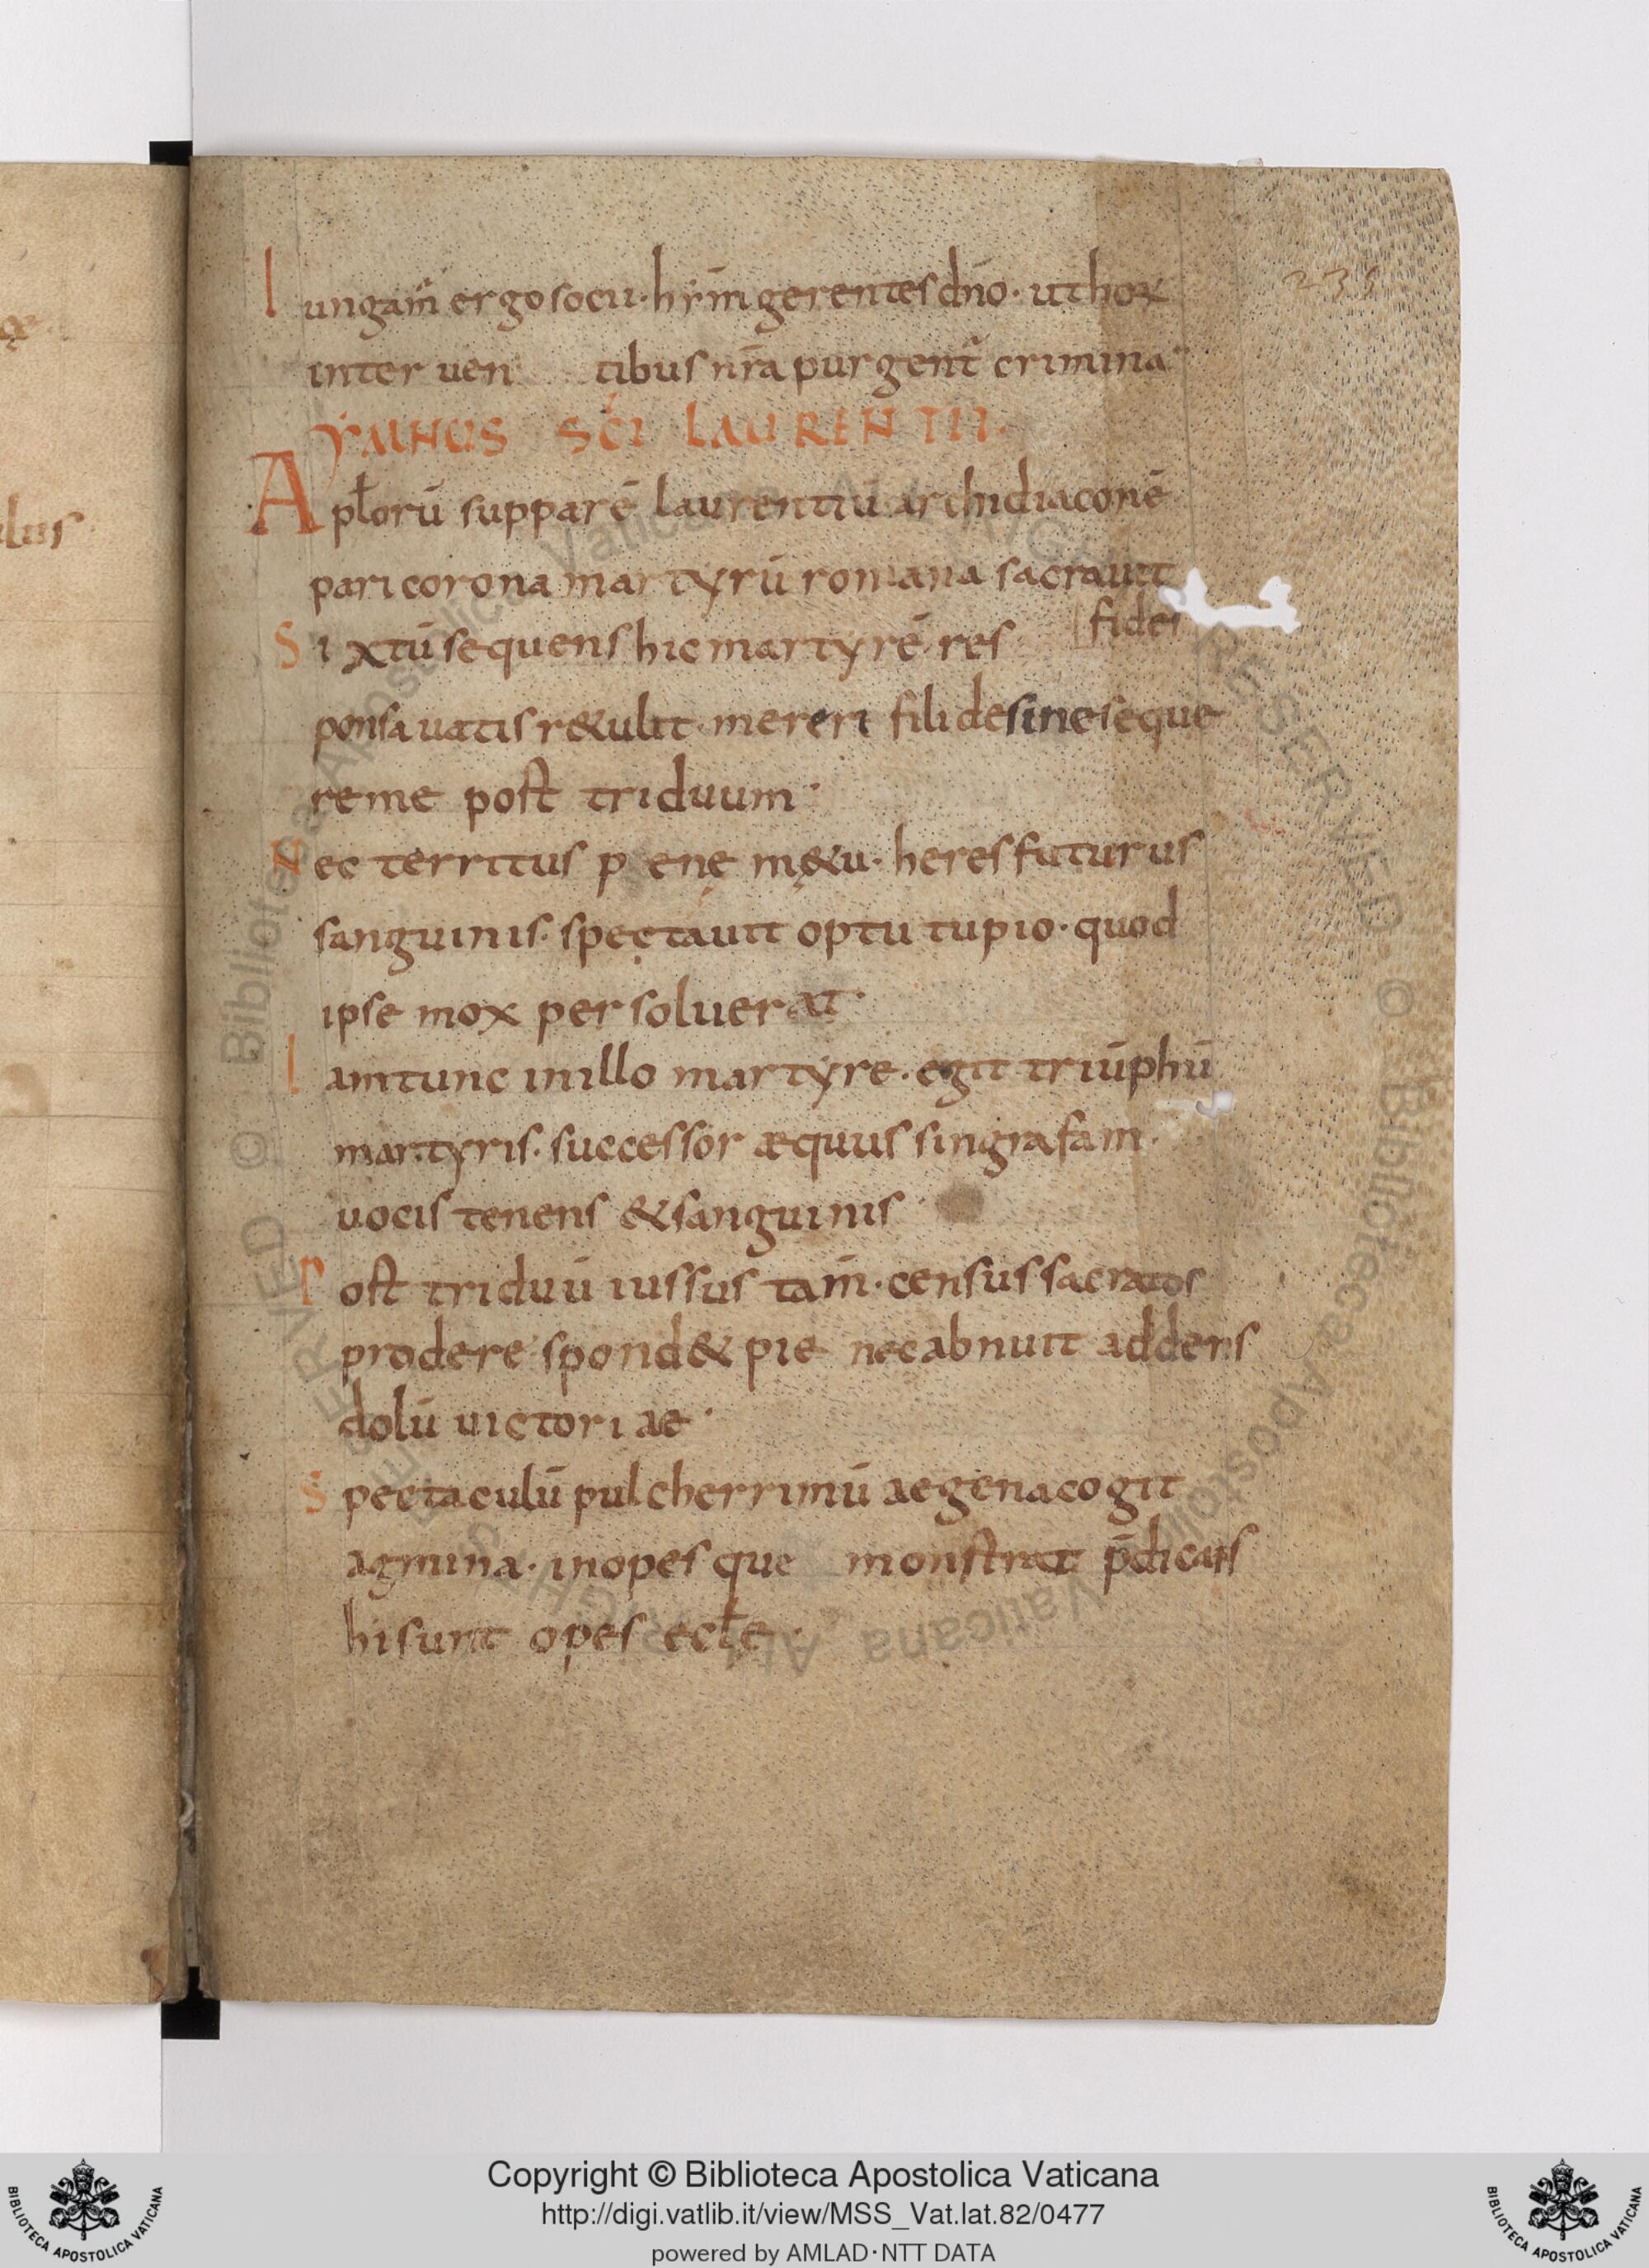 Iungam̅ ergo socii· hym̅ gerentes dn̅o· ut hoꝝ
inter uen tibus nr̅a purgent̅ crimina·
YMNUS SC̅I LAURENTII·
Apl̅orū supparē laurentiū archidiaconē
pari corona martyrū romana sacrauit
fides
Sixtū sequens hic martyrē· res
ponsa uatis r&ulit· mereri fili desine seque
re me post triduum·
Nec territus p enę m&u· heres futurus
sanguinis· spectauit optu tu pio· quod
ipse mox persoluerat·
Iam tunc in illo martyre· egit triūphū
martyris· successor æquus singrafam·
uocis tenens & sanguinis·
Post triduū iussus tam̅· census sacratos
prodere· spond& pie nec abnuit addens
dolū uictoriae·
Spectaculū pulcherrimū aegena cogit
agmina· inopesque monstrat p̅dicans
hi sunt opes eccl̅e·
lus
Copyright © Biblioteca Apostolica Vaticana
http://digi.vatlib.it/view/MSS_Vat.lat.82/0477
powered by AMLAD·NTT DATA
BIBLIOTECA APOSTOLICA VATICANA
BIBLIOTECA APOSTOLICA VATICANA